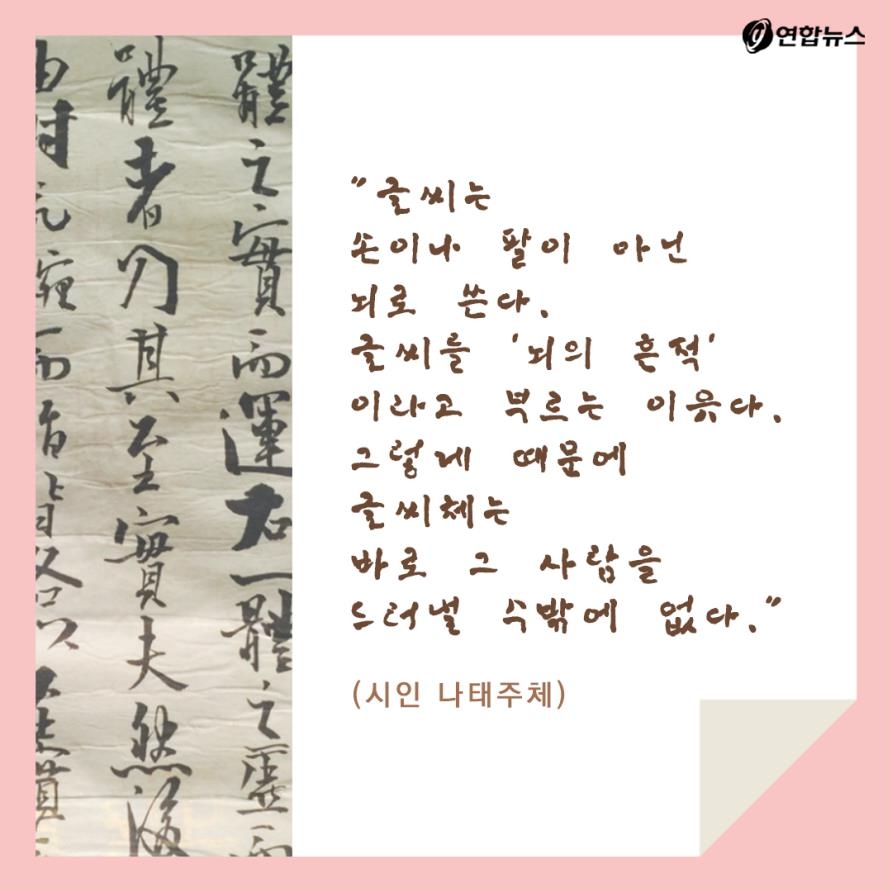 연합뉴스
"글씨는
손이나 팔이 아닌
뇌로 쓴다.
글씨를 '뇌의 흔적'
이라고 부르는 이유다.
그렇게 때문에
글씨체는
바로 그 사람을
드러낼 수밖에 없다."
(시인 나태주체)
體之實而運右一體之虛而
體者其至實夫然後